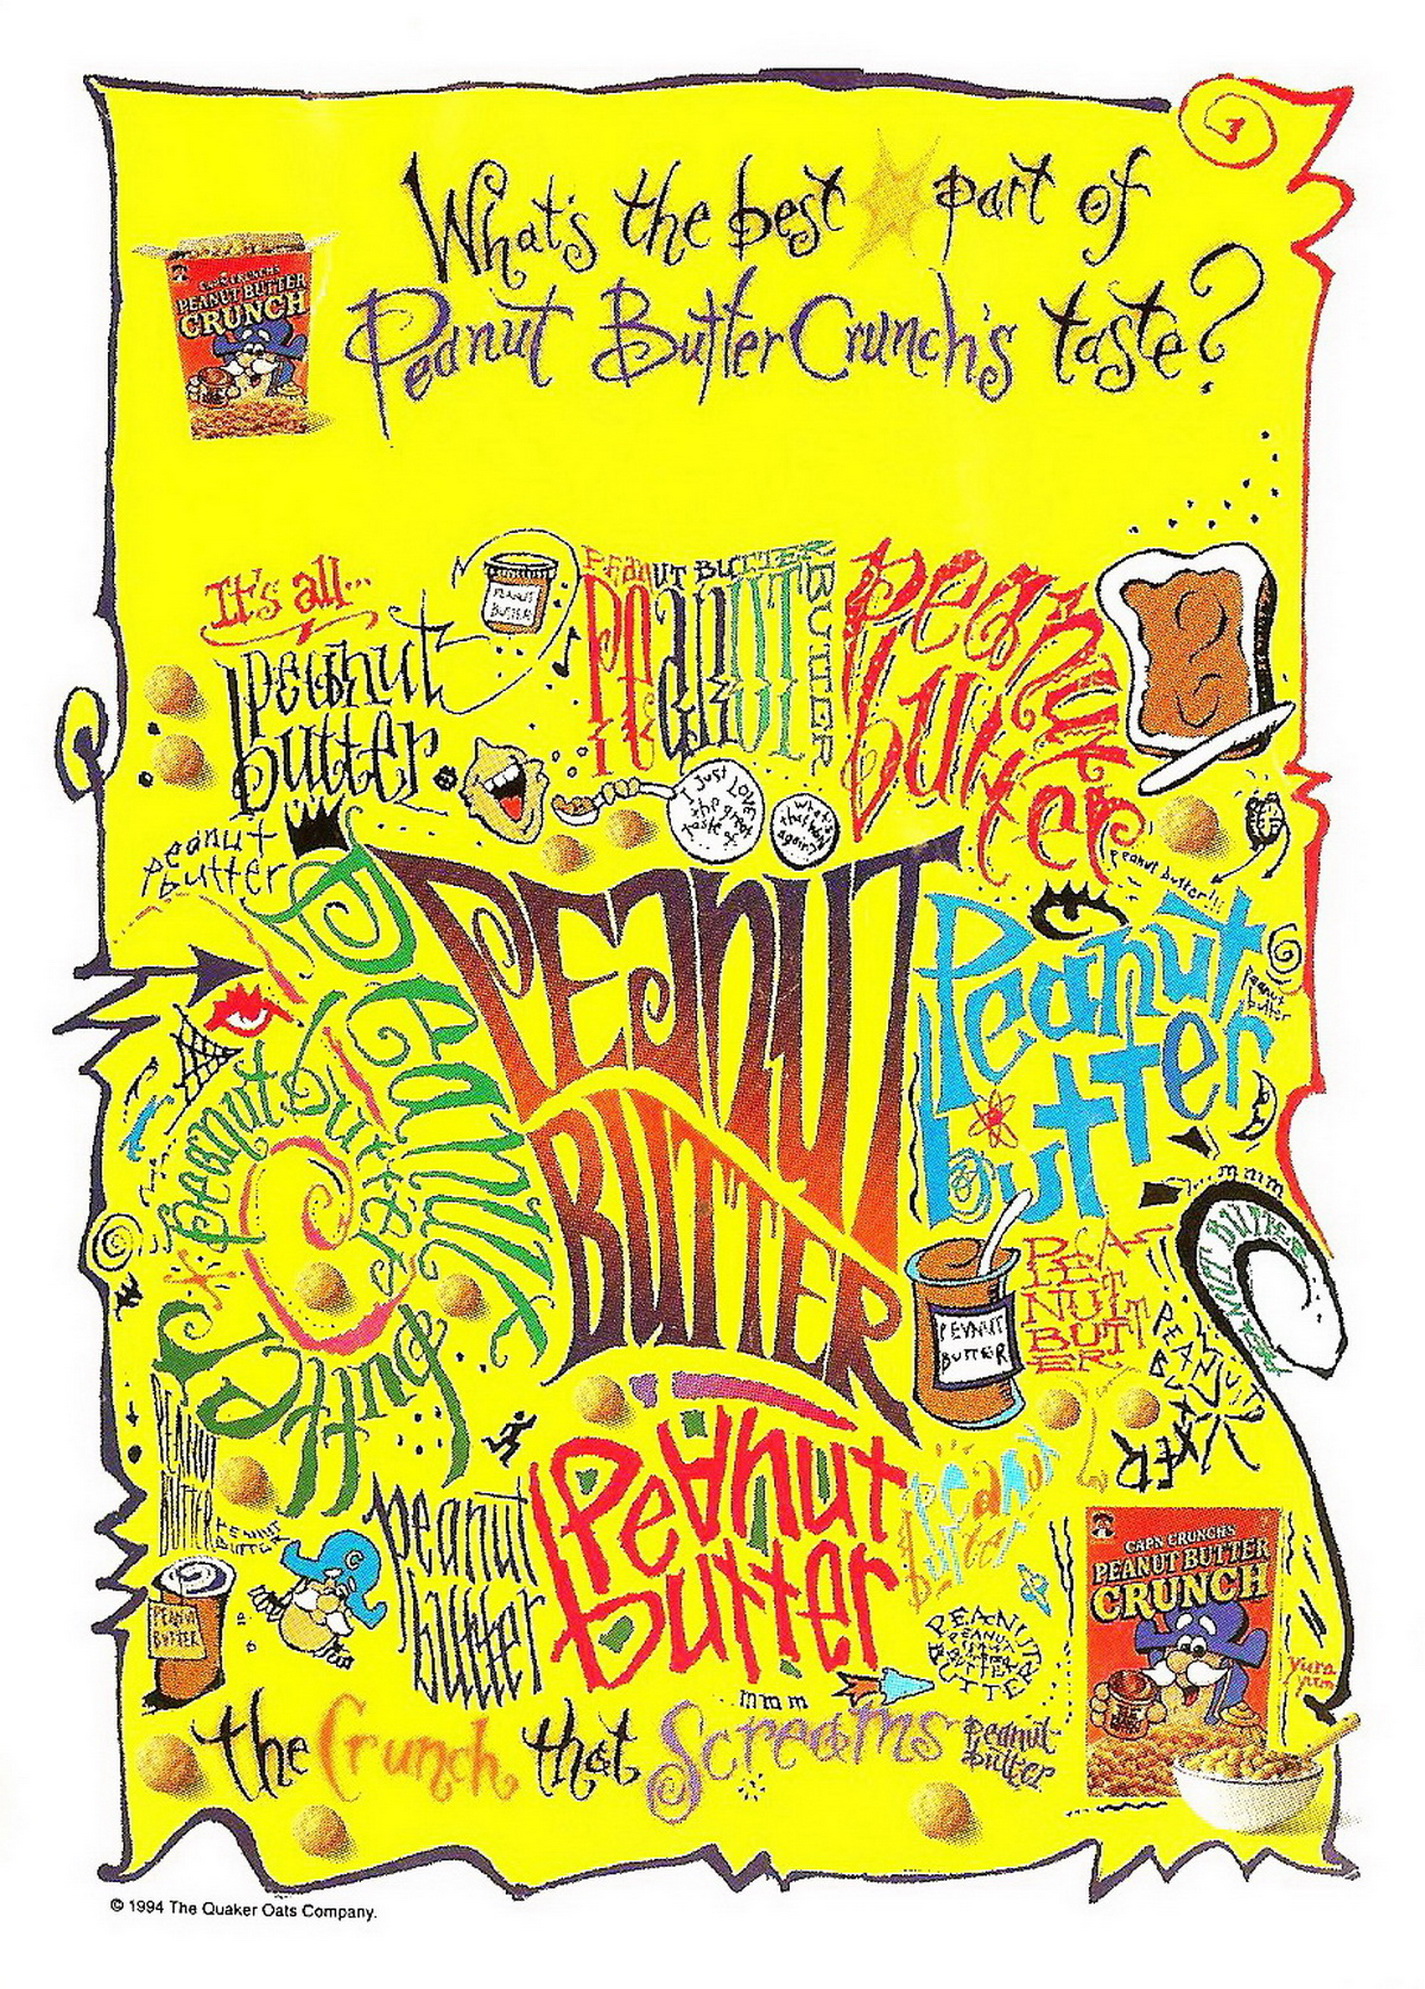 What's the best part of
Peanut Butter Crunch's taste?
CAP'N CRUNCH'S
PEANUT BUTTER
CRUNCH
It's all...
peanut
butter
PEANUT
BUTTER
PEANUT BUTTER
PEANUT
BUTTER
peanut
butter
I just LOVE
the great
taste of
What's
that word
again?
peanut
butter
Peanut butter!!!
PEANUT
BUTTER
Peanut
butter
peanut
butter
Peanut
Butter
peanut
butter
mmm
PEANUT BUTTER
PEANUT
BUTTER
PEA-
NUT
BUTT
ER
PEANUT
BUTTER
PEANUT
BUTTER
PEANUT
BUTTER
C
peanut
butter
Peanut
butter
peanut
butter
PEANUT
BUTTER
PEANUT
BUTTER
mmm
CAP'N CRUNCH'S
PEANUT BUTTER
CRUNCH
yum
yum
the Crunch that Screams peanut
butter
© 1994 The Quaker Oats Company.